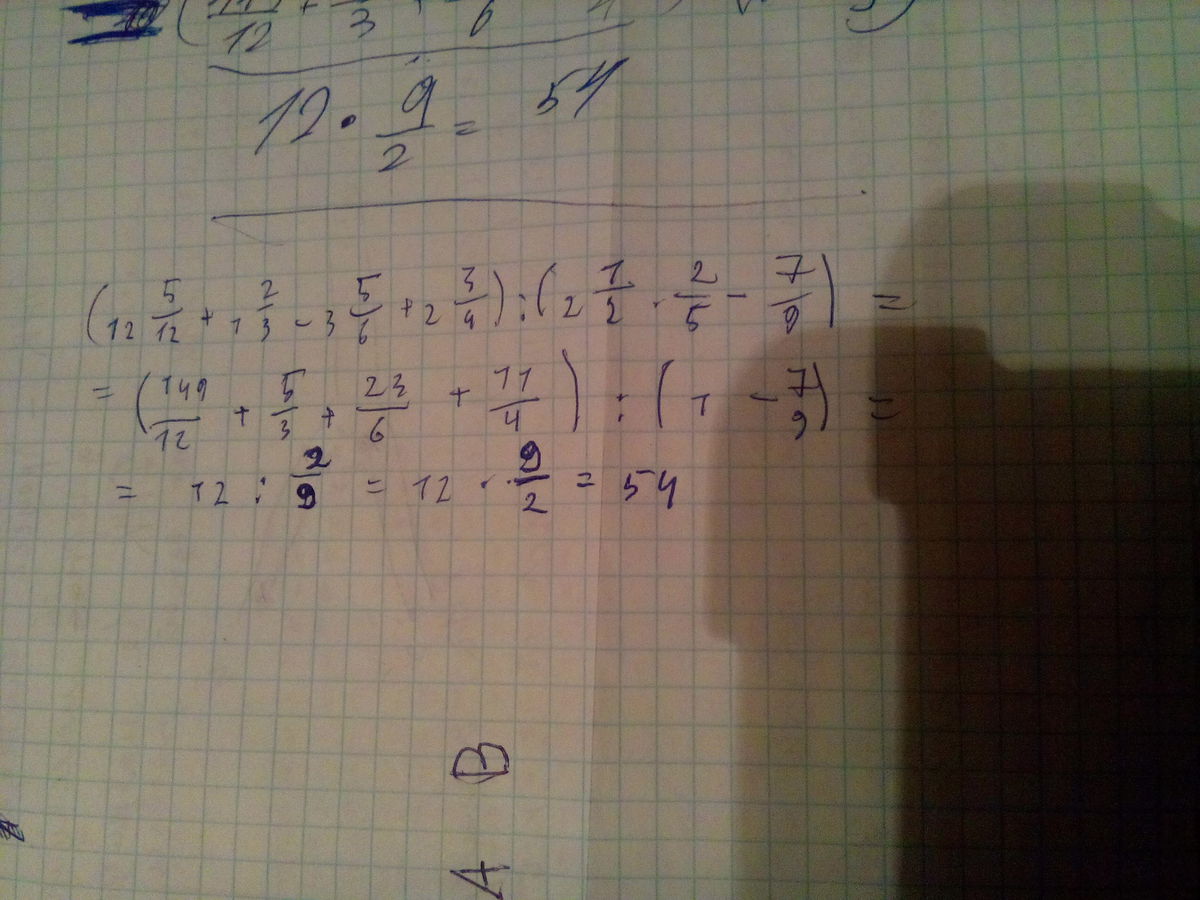 12 3 6
12 · 9/2 = 54
(12 5/12 + 1 2/3 - 3 5/6 + 2 3/4) : (2 1/2 · 2/5 - 7/9) =
= (149/12 + 5/3 + 23/6 + 11/4) : (1 - 7/9) =
= 12 : 2/9 = 12 · 9/2 = 54
B
A